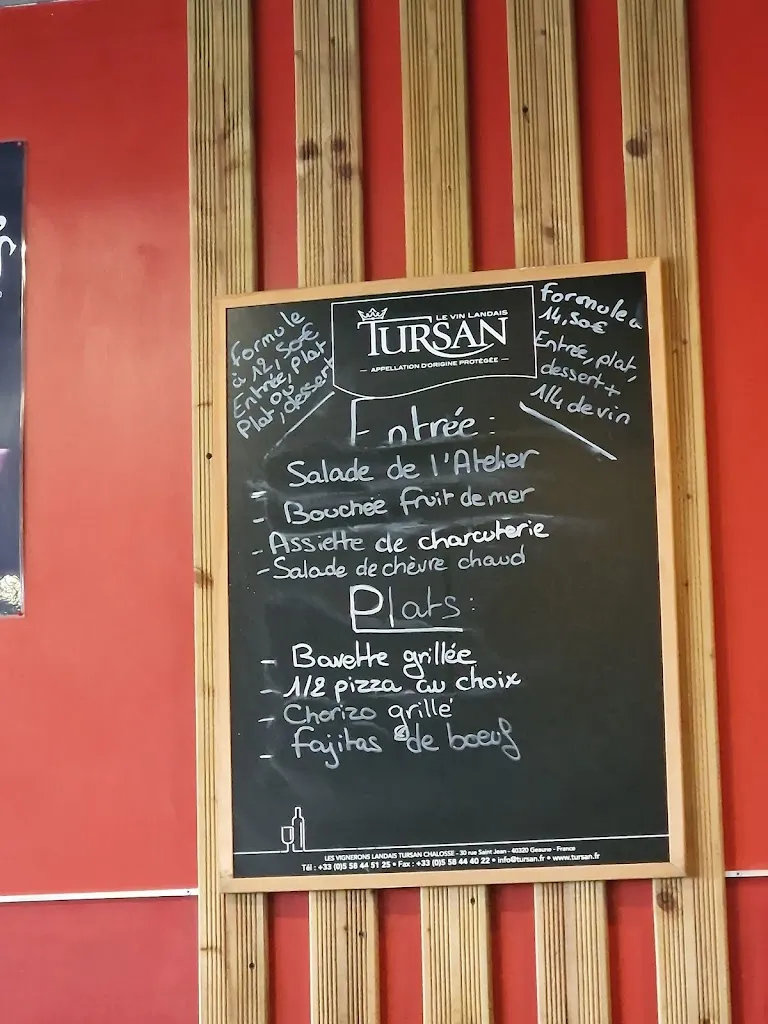 Formule
à 12,50€
Entrée, plat
ou
Plat, dessert
LE VIN LANDAIS
TURSAN
— APPELLATION D'ORIGINE PROTÉGÉE —
Formule à
14,50€
Entrée, plat,
dessert +
1/4 de vin
Entrée :
Salade de l'Atelier
- Bouchée fruit de mer
- Assiette de charcuterie
- Salade de chèvre chaud
Plats :
- Bavette grillée
- 1/2 pizza au choix
- Chorizo grillé
- Fajitas de boeuf
LES VIGNERONS LANDAIS TURSAN CHALOSSE - 30 rue Saint Jean - 40320 Geaune - France
Tél : +33 (0)5 58 44 51 25 • Fax : +33 (0)5 58 44 40 22 • info@tursan.fr • www.tursan.fr